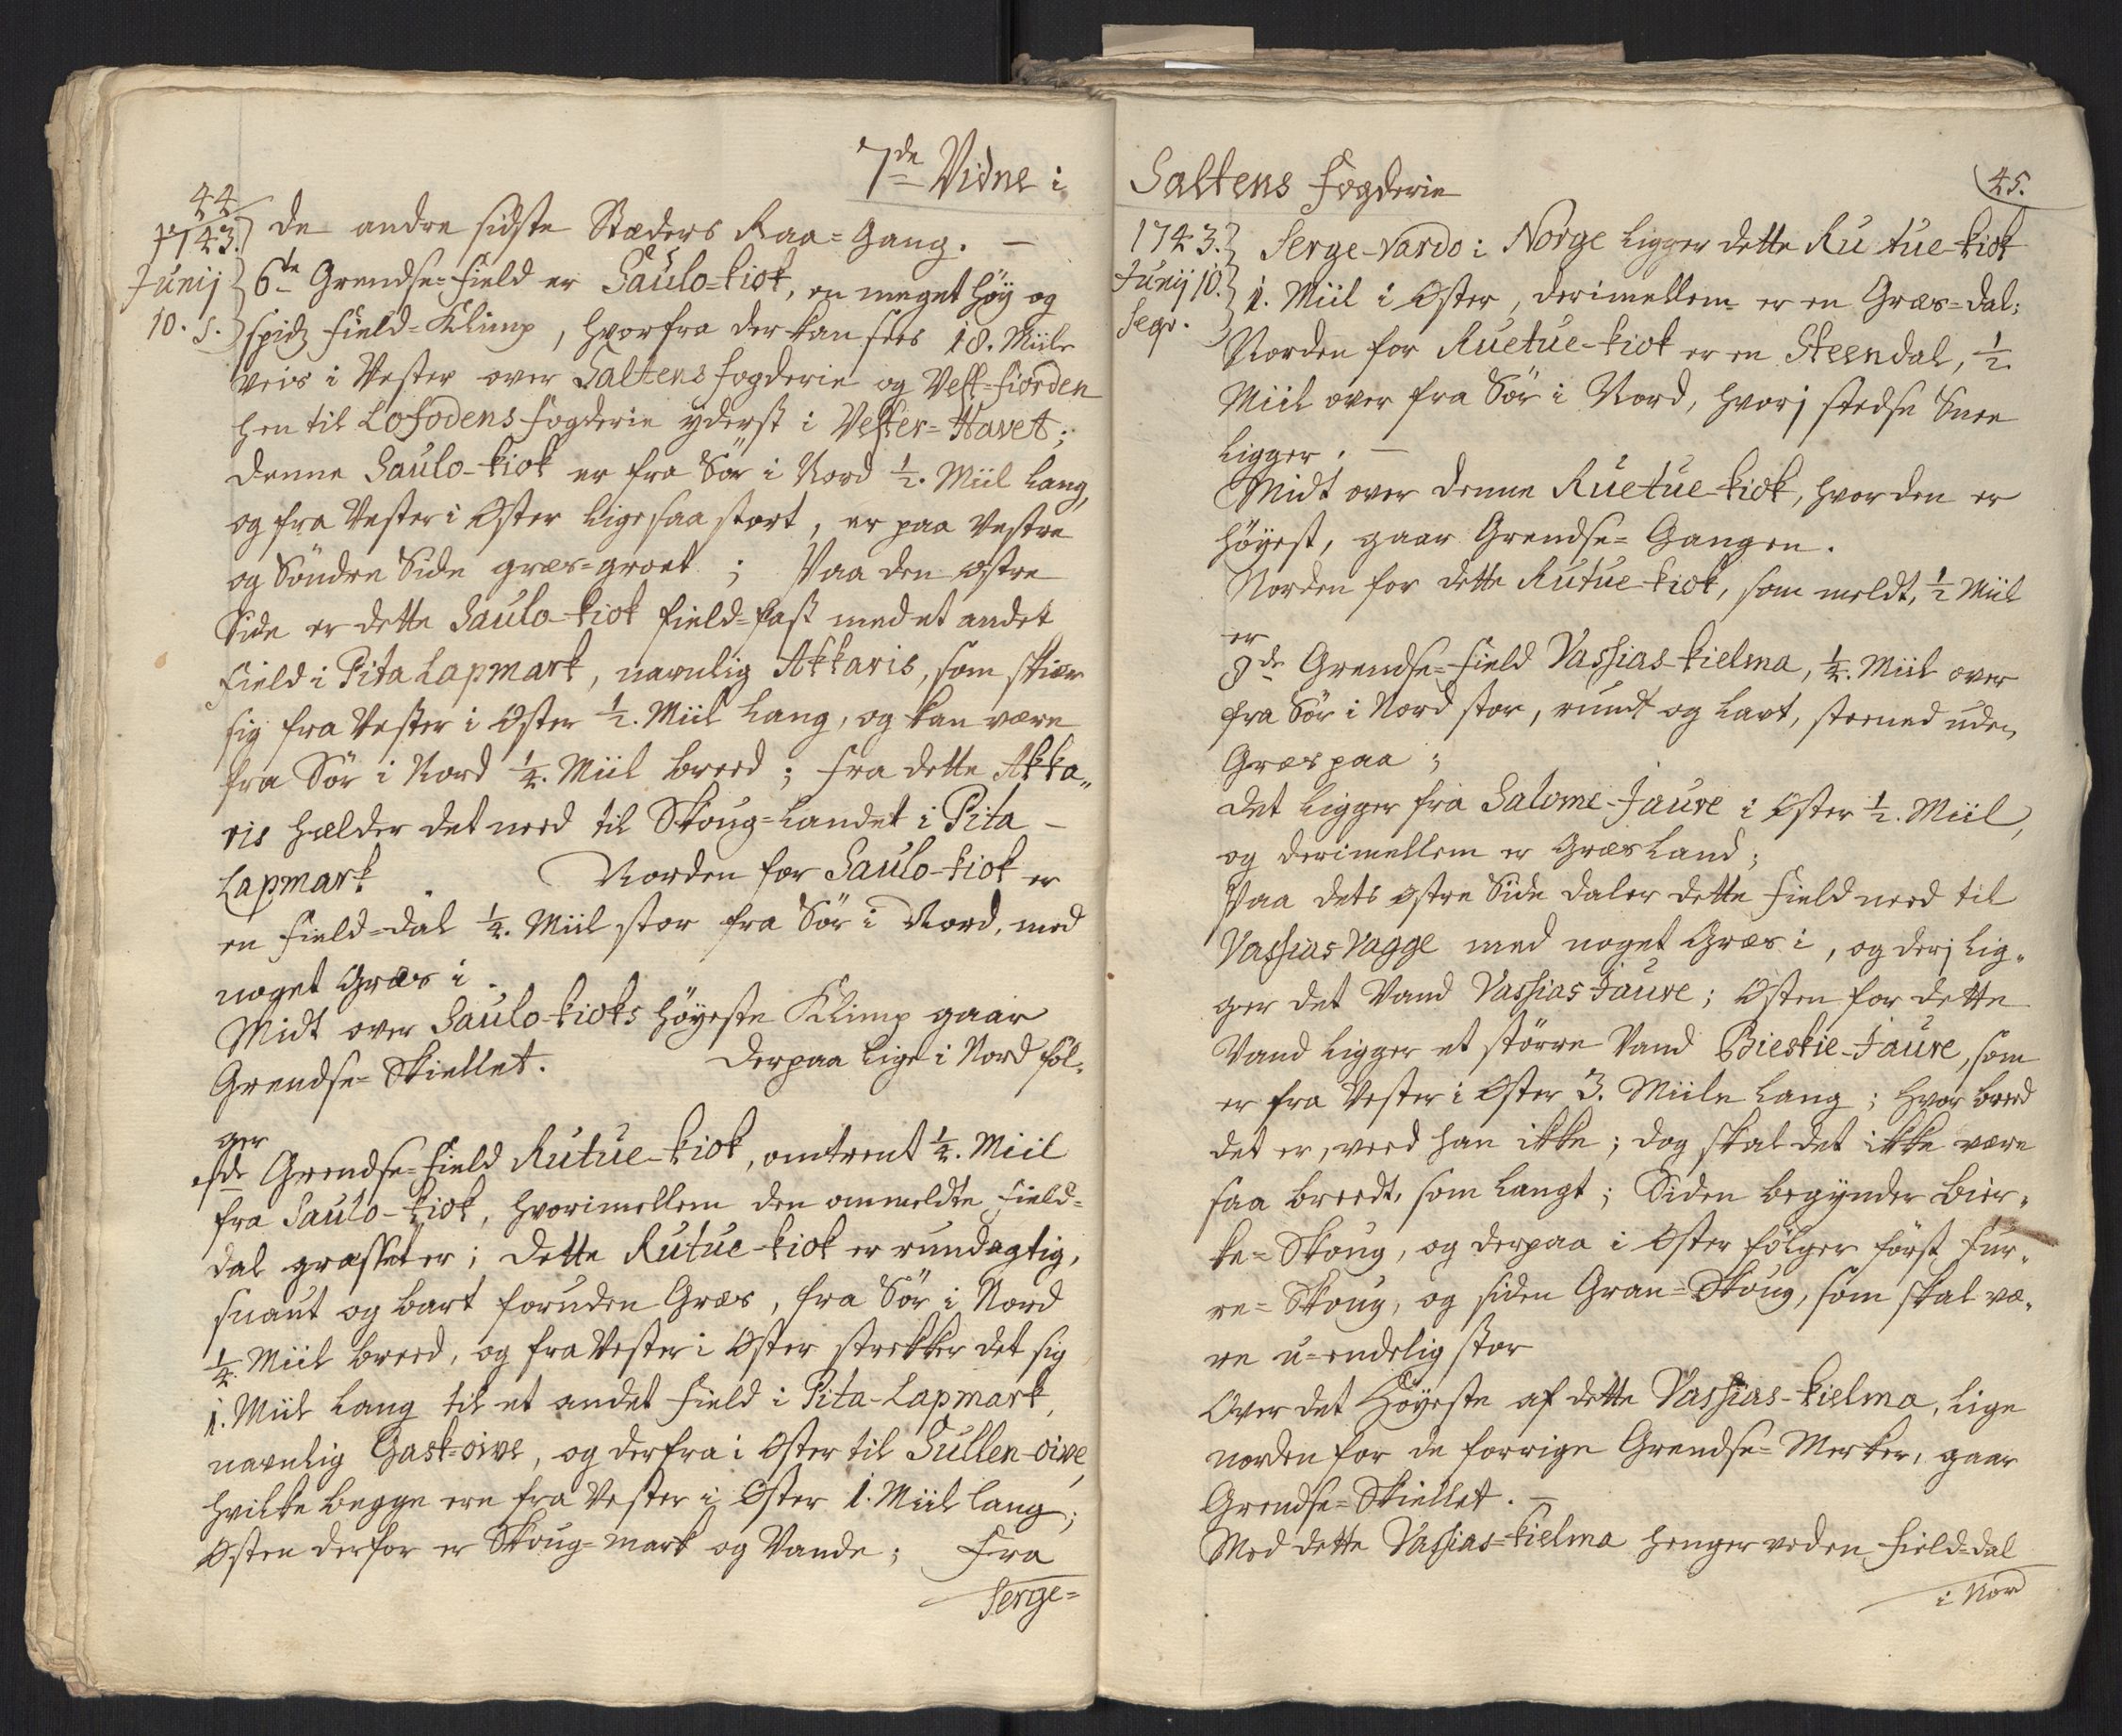 7de Vidne i
44
1743.
Junij
10. s.
de andre sidste Stæders Raa-Gang. —
6te Grendse-Field er Saulo-kiok, en meget høy og
spidz Field-Klimp, hvorfra der kan sees 18. Miile
veis i Vester over Saltens Fogderie og Vest-Fiorden
hen til Lofodens Fogderie yderst i Vester-Havet;
Denne Saulo-kiok er fra Sör i Nord ½. Miil lang,
og fra Vester i Øster ligesaa stort, er paa Vestre
og Söndre Side græs-groet; Paa den østre
Side er dette Saulo-kiok field-fast med et andet
Field i Pita Lapmark, navnlig Akkaris, som skiær
sig fra Vester i Øster ½. Miil lang, og kan være
fra Sör i Nord ¼. Miil breed; Fra dette Akka-
ris hælder det need til Skoug-Landet i Pita —
Lapmark. Norden for Saulo-kiok er
en Field-dal ¼. Miil stor fra Sör i Nord, med
noget Græs i.
Midt over Saulo-kioks höyeste Klimp gaar
Grendse-Skiellet. Derpaa lige i Nord föl-
ger
7de Grendse-Field Rutue-kiok, omtrent ¼. Miil
fra Saulo-kiok, hvorimellem den ommeldte Field-
dal græsset er; Dette Rutue-kiok er rundagtig,
snaut og bart foruden Græs, fra Sör i Nord
¼. Miil breed, og fra Vester i Øster strekker det sig
1. Miil lang til et andet Field i Pita-Lapmark,
navnlig Gask-oive, og derfra i Øster til Sullen-oive,
hvilke begge ere fra Vester i Øster 1. Miil lang;
Østen derfor er Skoug-mark og Vande; Fra
Serge-
Saltens Fogderie
45.
1743.
Junij 10.
seqv.
Serge-Vardo i Norge ligger dette Rutue-kiok
1. Miil i Øster, derimellem er en Græs-dal;
Norden for Ruetue-kiok er en Steendal, ½
Miil over fra Sör i Nord, hvorj stedse Snee
ligger. —
Midt over denne Ruetue-kiok, hvor den er
höyest, gaar Grendse-Gangen.
Norden for dette Rutue-kiok, som meldt, ½ Miil
er
8de Grendse-Field Vassias-kielma, ¼. Miil over
fra Sör i Nord stor, rundt og lavt, steened uden
Græs paa;
Det ligger fra Salome-Jaure i Øster ½. Miil,
og derimellem er Græs Land;
Paa dets østre Side daler dette Field need til
Vassias Vagge med noget Græs i, og derj lig-
ger det Vand Vassias Jaure; Østen for dette
Vand ligger et större Vand Bieskie-Jaure, som
er fra Vester i Øster 3. Miile lang; hvor breed
det er, veed han ikke; dog skal det ikke være
saa breedt, som langt; Siden begynder Bier-
ke-Skoug, og derpaa i Øster fölger först Fur-
re-Skoug, og siden Gran-Skoug, som skal væ-
re u-endelig stor
Over det Höyeste af dette Vassias-kielma, lige
norden for de forrige Grendse-Merker, gaar
Grendse-Skiellet. —
Med dette Vassias-kielma henger ved en Field-dal
i Nor